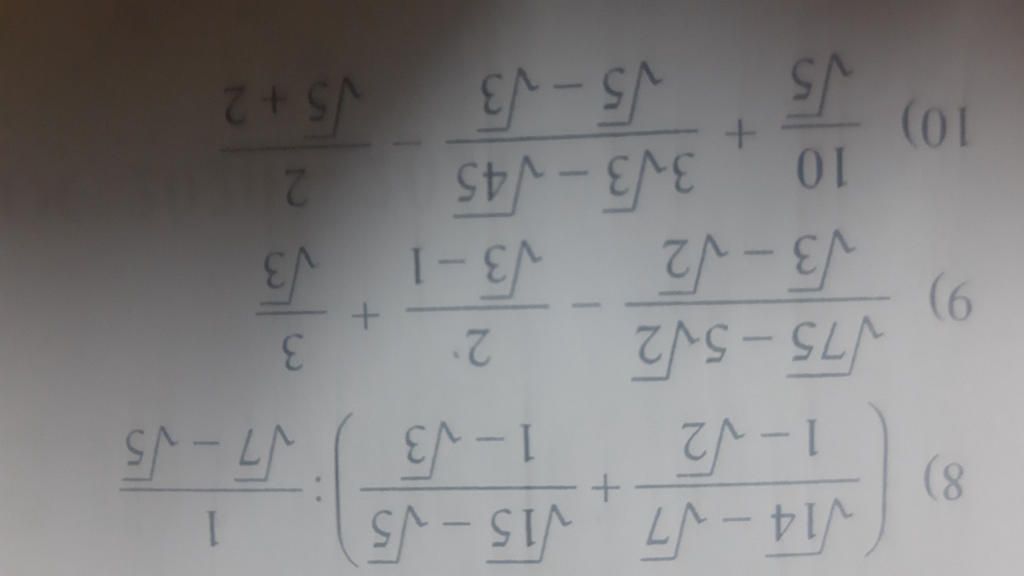 8) \left( \frac{\sqrt{14} - \sqrt{7}}{1 - \sqrt{2}} + \frac{\sqrt{15} - \sqrt{5}}{1 - \sqrt{3}} \right) : \frac{1}{\sqrt{7} - \sqrt{5}}
9) \frac{\sqrt{75} - 5\sqrt{2}}{\sqrt{3} - \sqrt{2}} - \frac{2}{\sqrt{3} - 1} + \frac{3}{\sqrt{3}}
10) \frac{10}{\sqrt{5}} + \frac{3\sqrt{3} - \sqrt{45}}{\sqrt{5} - \sqrt{3}} - \frac{2}{\sqrt{5} + 2}